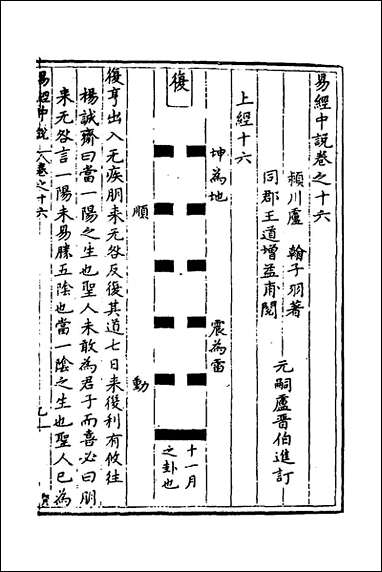 易經中說卷之十六
穎川盧 翰子羽著
同郡王道增益甫閱
元嗣盧晋伯進訂
上經十六
坤為地
震為雷
復
十一月
之卦也
順
動
復亨出入无疾朋来无咎反復其道七日来復利有攸往
楊誠齋曰當一陽之生也聖人未敢為君子而喜必曰朋
来无咎言一陽未易勝五陰也當一陰之生也聖人已為
易經中說 卷之十六